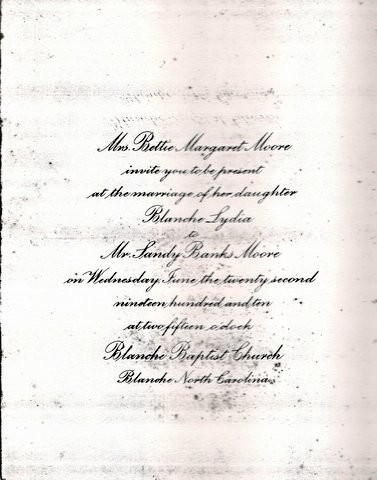 Mrs. Bettie Margaret Moore
invite you to be present
at the marriage of her daughter
Blanche Lydia
to
Mr. Sandy Banks Moore
on Wednesday, June the twenty second
nineteen hundred and ten
at two fifteen o'clock
Blanche Baptist Church
Blanche North Carolina